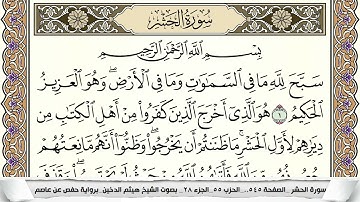 سُورَةُ الحَشْرِ
بِسْمِ اللَّهِ الرَّحْمَٰنِ الرَّحِيمِ
سَبَّحَ لِلَّهِ مَا فِي السَّمَاوَاتِ وَمَا فِي الْأَرْضِ وَهُوَ الْعَزِيزُ
الْحَكِيمُ ١ هُوَ الَّذِي أَخْرَجَ الَّذِينَ كَفَرُوا مِنْ أَهْلِ الْكِتَابِ مِن
دِيَارِهِمْ لِأَوَّلِ الْحَشْرِ مَا ظَنَنتُمْ أَن يَخْرُجُوا وَظَنُّوا أَنَّهُم مَّانِعَتُهُمْ
سورة الحشر _ الصفحة ٥٤٥ _ الحزب ٥٥ _ الجزء ٢٨ _ بصوت الشيخ هيثم الدخين _ برواية حفص عن عاصم